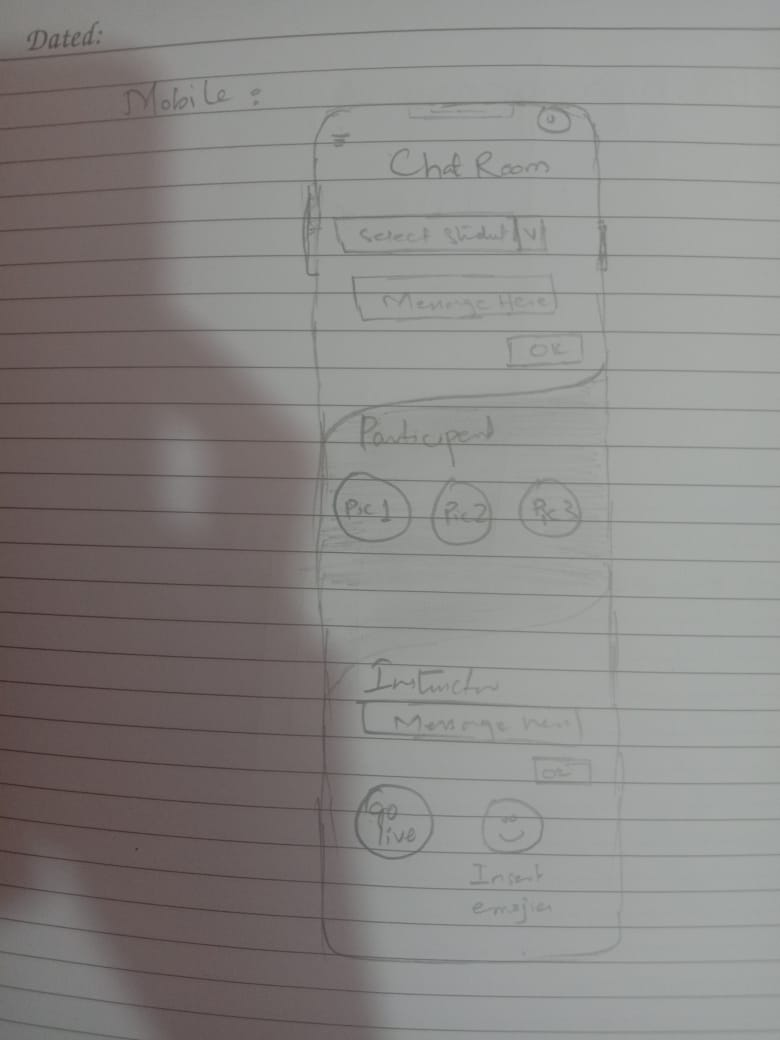 Dated:
Mobile :
Chat Room
Select Student V
Message Here
OK
Participent
Pic1 Pic2 Pic3
Instructor
Message here
OK
go
live
Insert
emojies